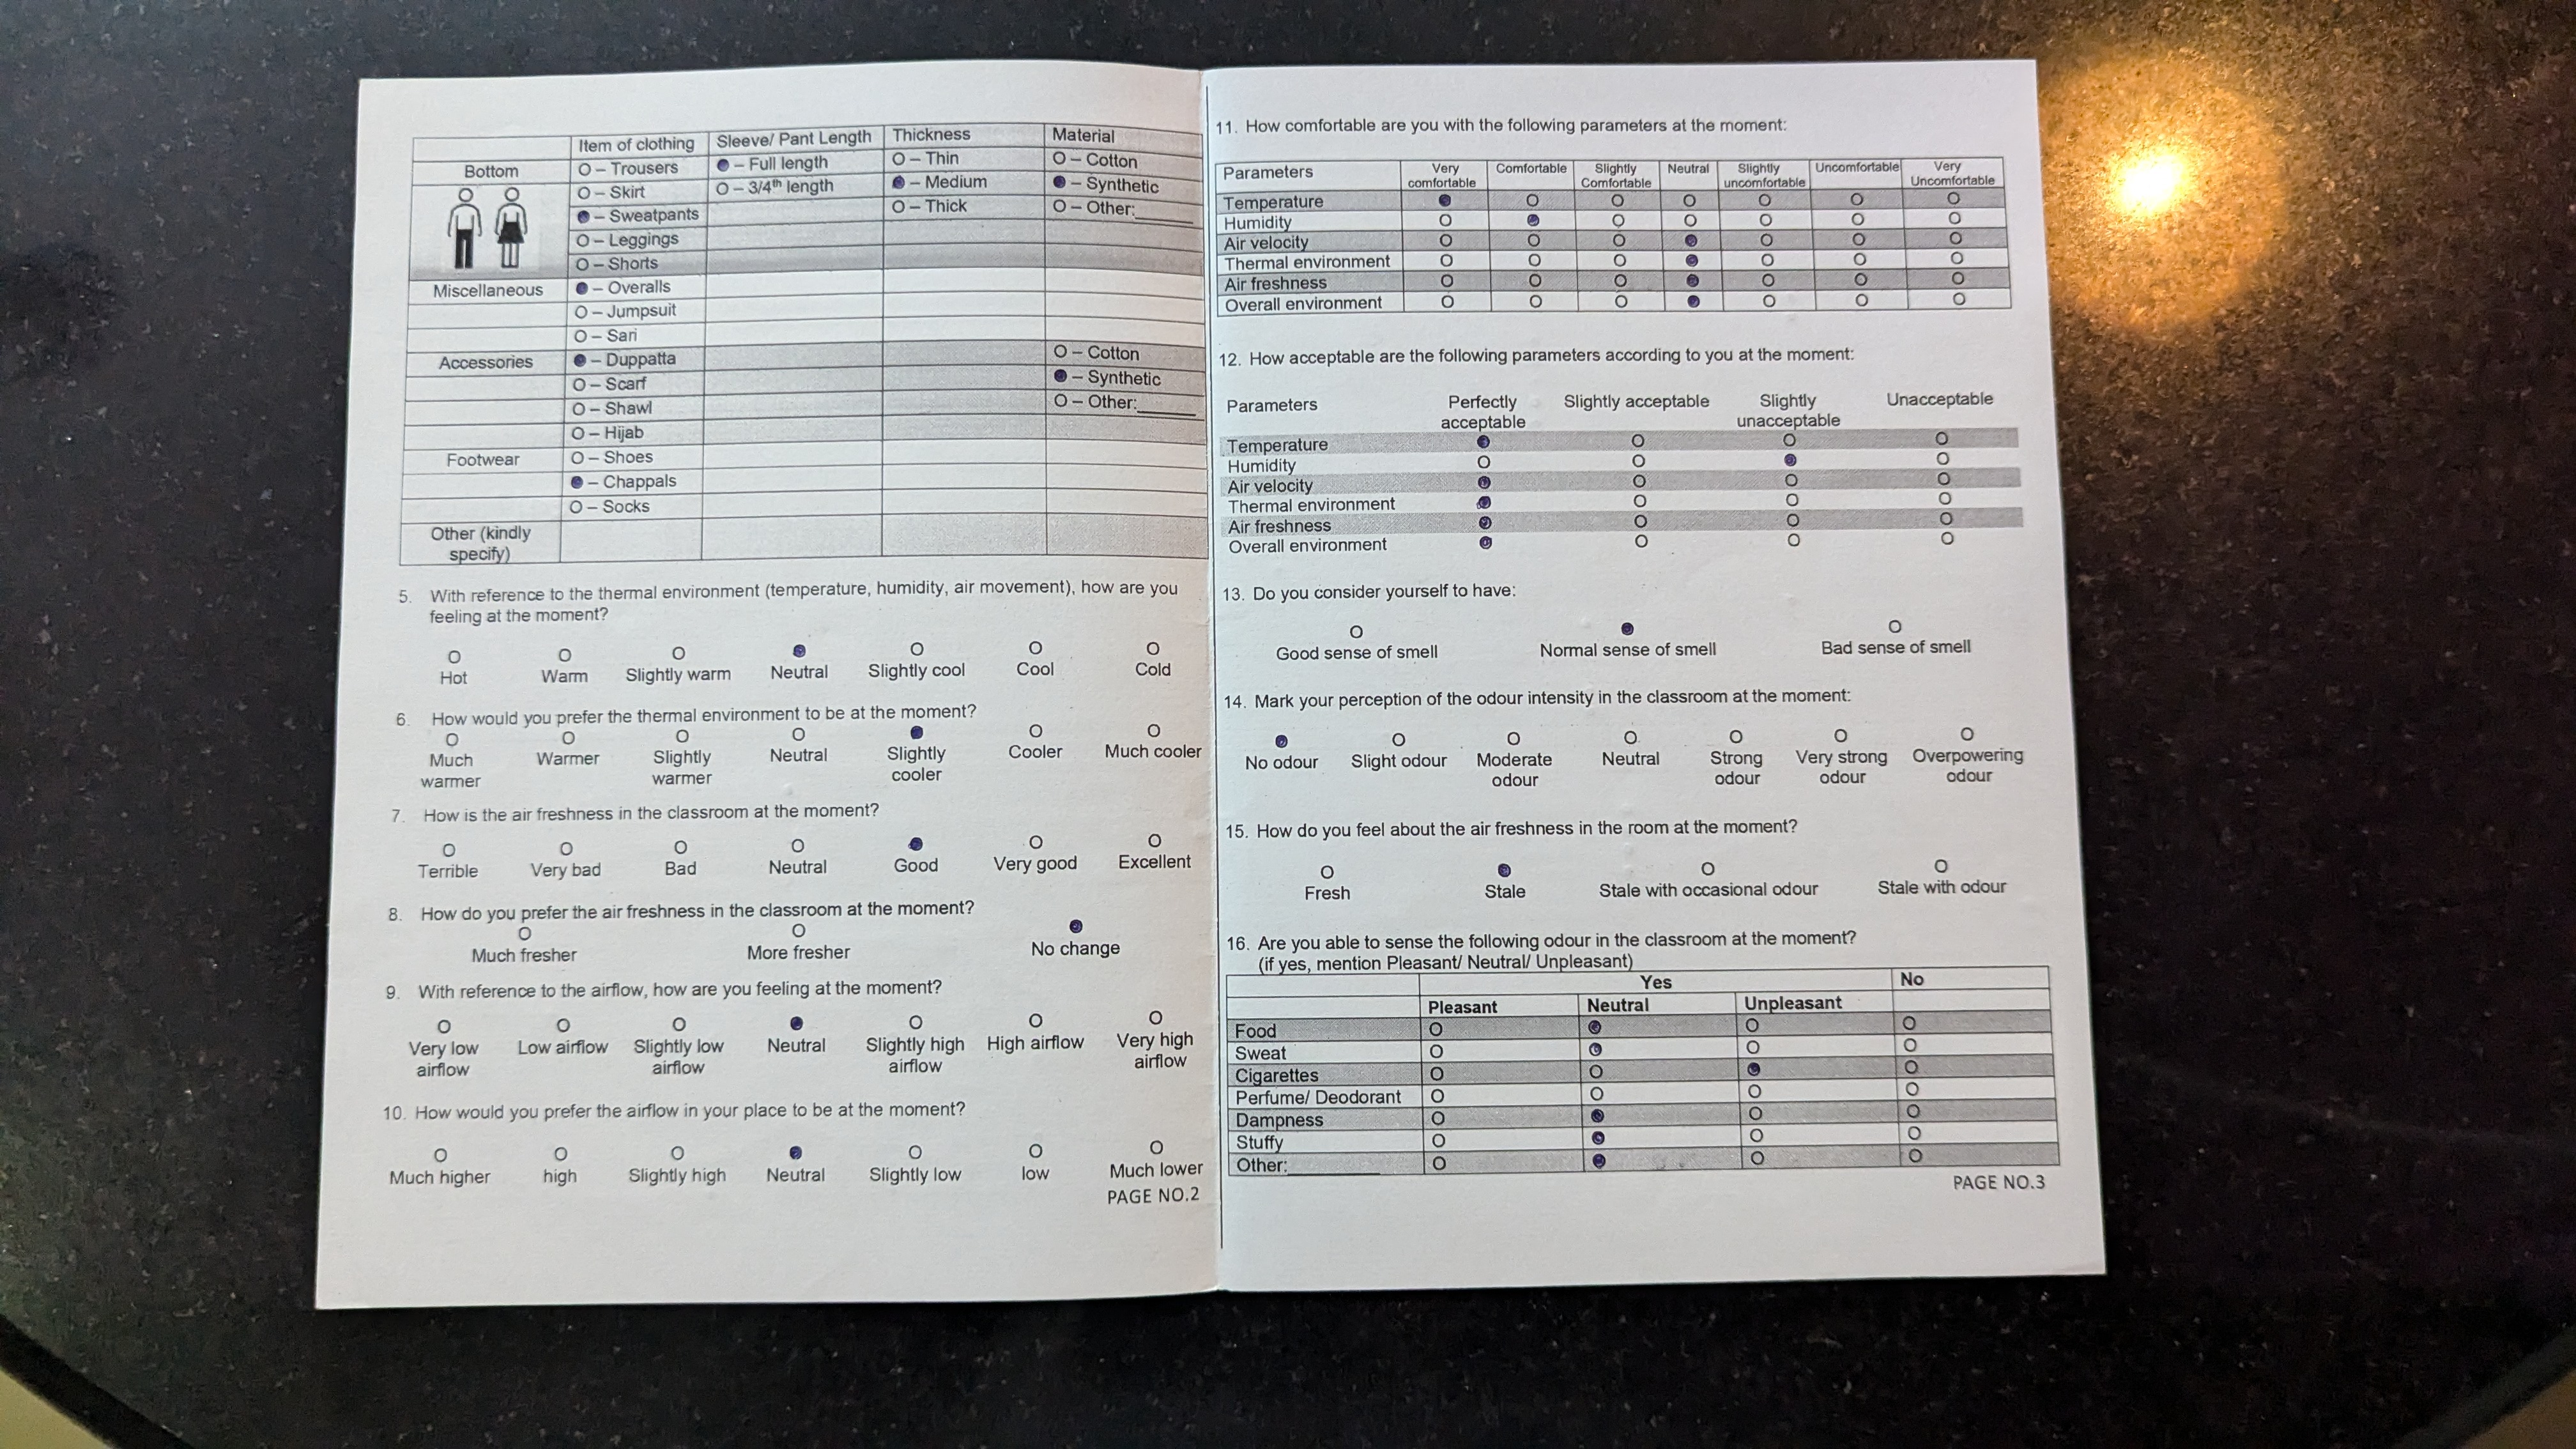 Item of clothing Sleeve/ Pant Length Thickness Material
Bottom O – Trousers ● – Full length O – Thin O – Cotton
O – Skirt O – 3/4th length ● – Medium ● – Synthetic
● – Sweatpants O – Thick O – Other:______
O – Leggings
O – Shorts
Miscellaneous ● – Overalls
O – Jumpsuit
O – Sari
Accessories ● – Duppatta O – Cotton
O – Scarf ● – Synthetic
O – Shawl O – Other:______
O – Hijab
Footwear O – Shoes
● – Chappals
O – Socks
Other (kindly
specify)
5. With reference to the thermal environment (temperature, humidity, air movement), how are you
feeling at the moment?
O O O ● O O O
Hot Warm Slightly warm Neutral Slightly cool Cool Cold
6. How would you prefer the thermal environment to be at the moment?
O O O O ● O O
Much Warmer Slightly Neutral Slightly Cooler Much cooler
warmer warmer cooler
7. How is the air freshness in the classroom at the moment?
O O O O ● O O
Terrible Very bad Bad Neutral Good Very good Excellent
8. How do you prefer the air freshness in the classroom at the moment?
O O ●
Much fresher More fresher No change
9. With reference to the airflow, how are you feeling at the moment?
O O O ● O O O
Very low Low airflow Slightly low Neutral Slightly high High airflow Very high
airflow airflow airflow airflow
10. How would you prefer the airflow in your place to be at the moment?
O O O ● O O O
Much higher high Slightly high Neutral Slightly low low Much lower
PAGE NO.2
11. How comfortable are you with the following parameters at the moment:
Parameters Very Comfortable Slightly Neutral Slightly Uncomfortable Very
comfortable Comfortable uncomfortable Uncomfortable
Temperature ● O O O O O O
Humidity O ● O O O O O
Air velocity O O O ● O O O
Thermal environment O O O ● O O O
Air freshness O O O ● O O O
Overall environment O O O ● O O O
12. How acceptable are the following parameters according to you at the moment:
Parameters Perfectly Slightly acceptable Slightly Unacceptable
acceptable unacceptable
Temperature ● O O O
Humidity O O ● O
Air velocity ● O O O
Thermal environment ● O O O
Air freshness ● O O O
Overall environment ● O O O
13. Do you consider yourself to have:
O ● O
Good sense of smell Normal sense of smell Bad sense of smell
14. Mark your perception of the odour intensity in the classroom at the moment:
● O O O O O O
No odour Slight odour Moderate Neutral Strong Very strong Overpowering
odour odour odour odour
15. How do you feel about the air freshness in the room at the moment?
O ● O O
Fresh Stale Stale with occasional odour Stale with odour
16. Are you able to sense the following odour in the classroom at the moment?
(if yes, mention Pleasant/ Neutral/ Unpleasant)
Yes No
Pleasant Neutral Unpleasant
Food O ● O O
Sweat O ● O O
Cigarettes O O ● O
Perfume/ Deodorant O O O O
Dampness O ● O O
Stuffy O ● O O
Other:__________ O ● O O
PAGE NO.3